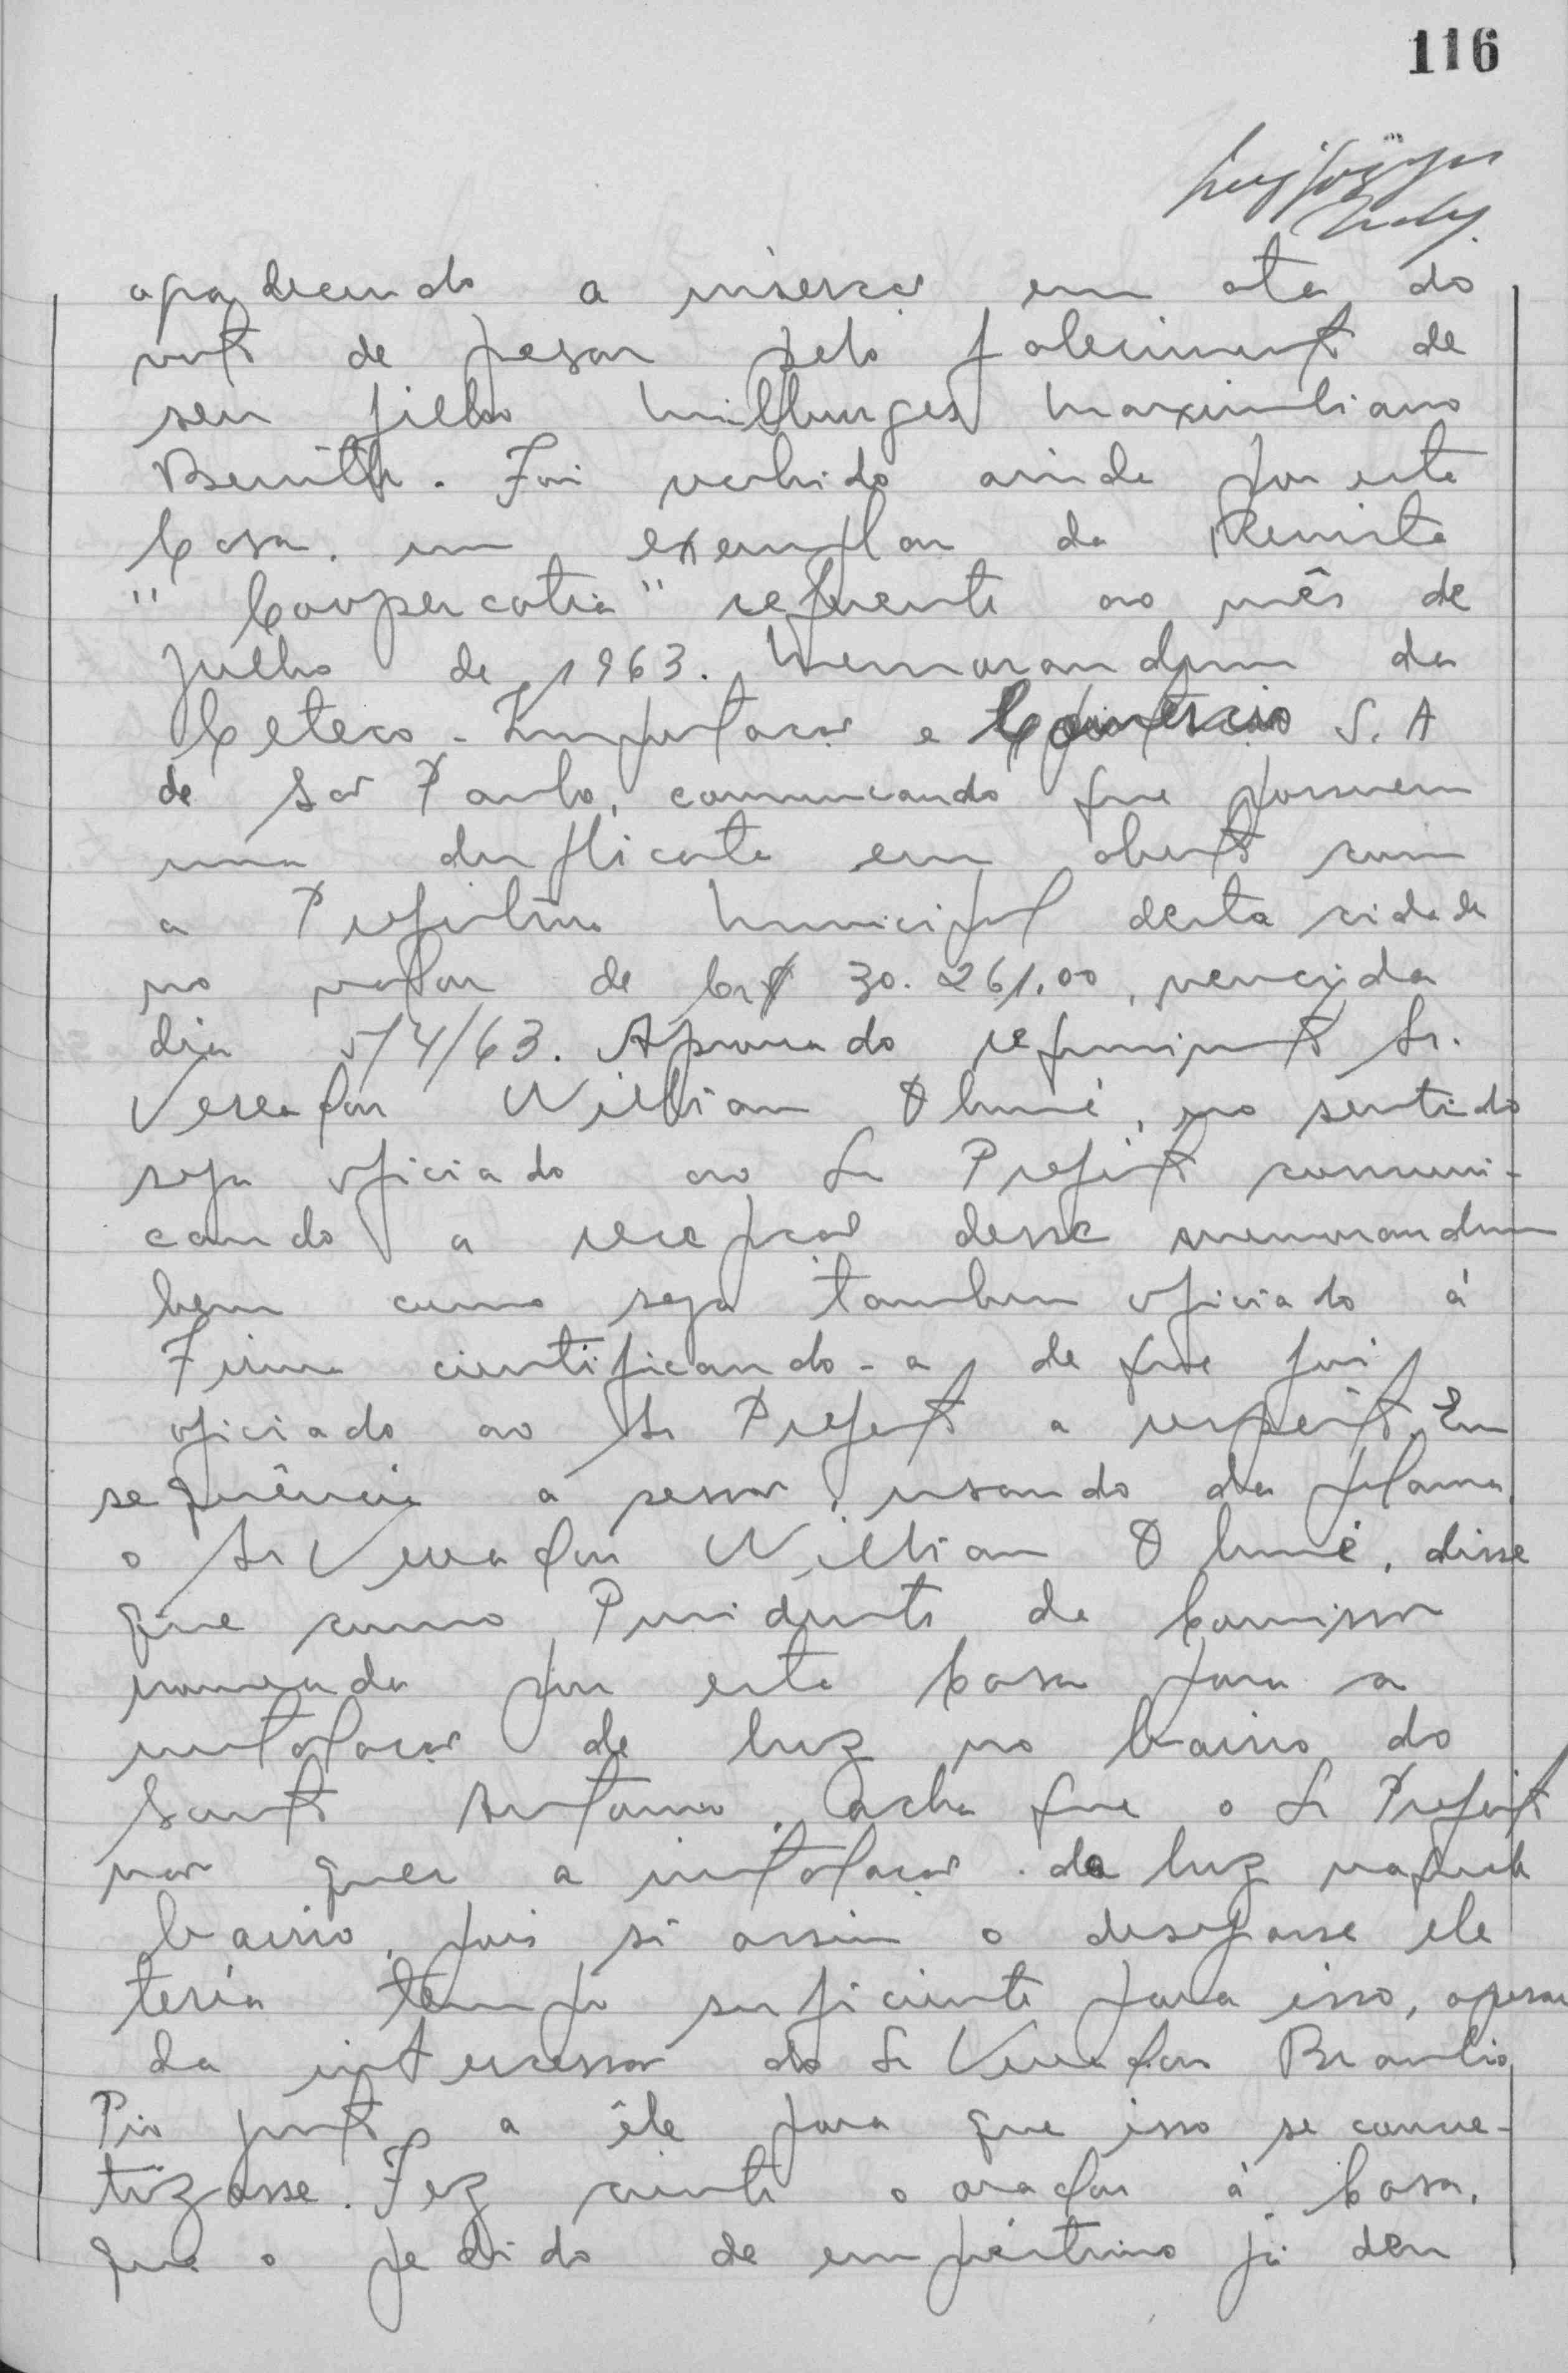 116
agradecendo a inserção em ata do
voto de pesar pelo falecimento de
seu filho Maximiliano
Benith. Foi recebido ainda por esta
Casa, um exemplar da Revista
"Coopercotia" referente ao mês de
julho de 1963. Memorandum da
Ceteco - Importação e Comércio S.A
de São Paulo, comunicando que possuem
uma duplicata em aberto com
a Prefeitura Municipal desta cidade
no valor de Cr$ 30.261,00, vencida
dia 5/4/63. Aprovado requerimento Sr.
Vereador William, no sentido
seja oficiado ao Sr Prefeito comuni-
cando a recepção desse memorandum
bem como seja tambem oficiado á
Firma cientificando-a de que foi
oficiado ao Sr Prefeito a respeito. Em
sequência a sessão, usando da palavra
o Sr Vereador William, disse
que como Presidente da Comissão
nomeada por esta Casa para a
instalação de luz no bairro do
Santo Antonio, acha que o Sr Prefeito
não quer a instalação da luz naquele
bairro, pois si assim o desejasse ele
teria tempo suficiente para isso, apesar
da intercessão do Sr Vereador Braulio
Pio junto a êle para que isso se concre-
tizasse. Fez ciente o orador á Casa,
que o pedido de empréstimo já deu